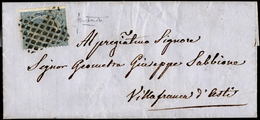 Al pregiatmo Signore
Signor Geometra Giuseppe Sabbione
Villafranca d'Asti